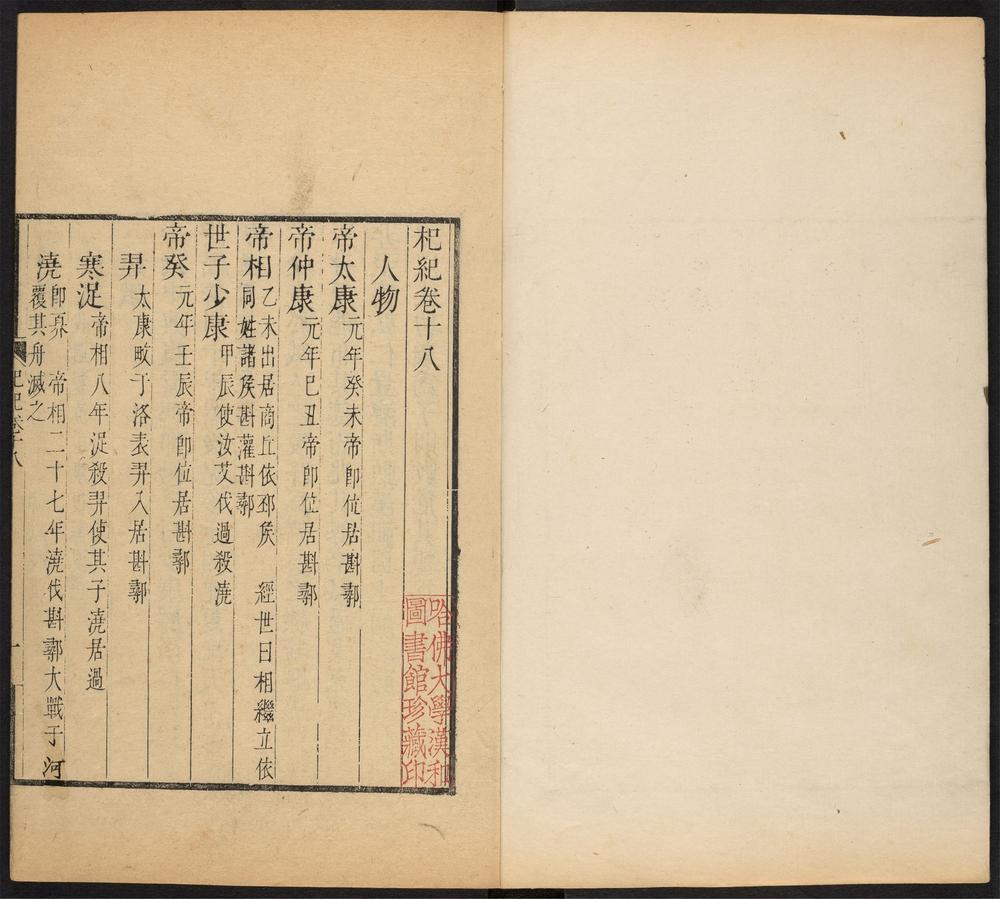 杞紀卷十八
人物
帝太康元年癸未帝卽位居斟鄩
帝仲康元年巳丑帝卽位居斟鄩
帝相乙未出居商丘依邳侯　經世曰相繼立依
同姓諸侯斟灌斟鄩
世子少康甲辰使汝艾伐過殺澆
帝癸元年壬辰帝卽位居斟鄩
羿太康畋于洛表羿入居斟鄩
寒浞帝相八年浞殺羿使其子澆居過
澆卽奡　帝相二十七年澆伐斟鄩大戰于河
覆其舟滅之
杞紀卷十八
一
哈佛大學漢和
圖書館珍藏印